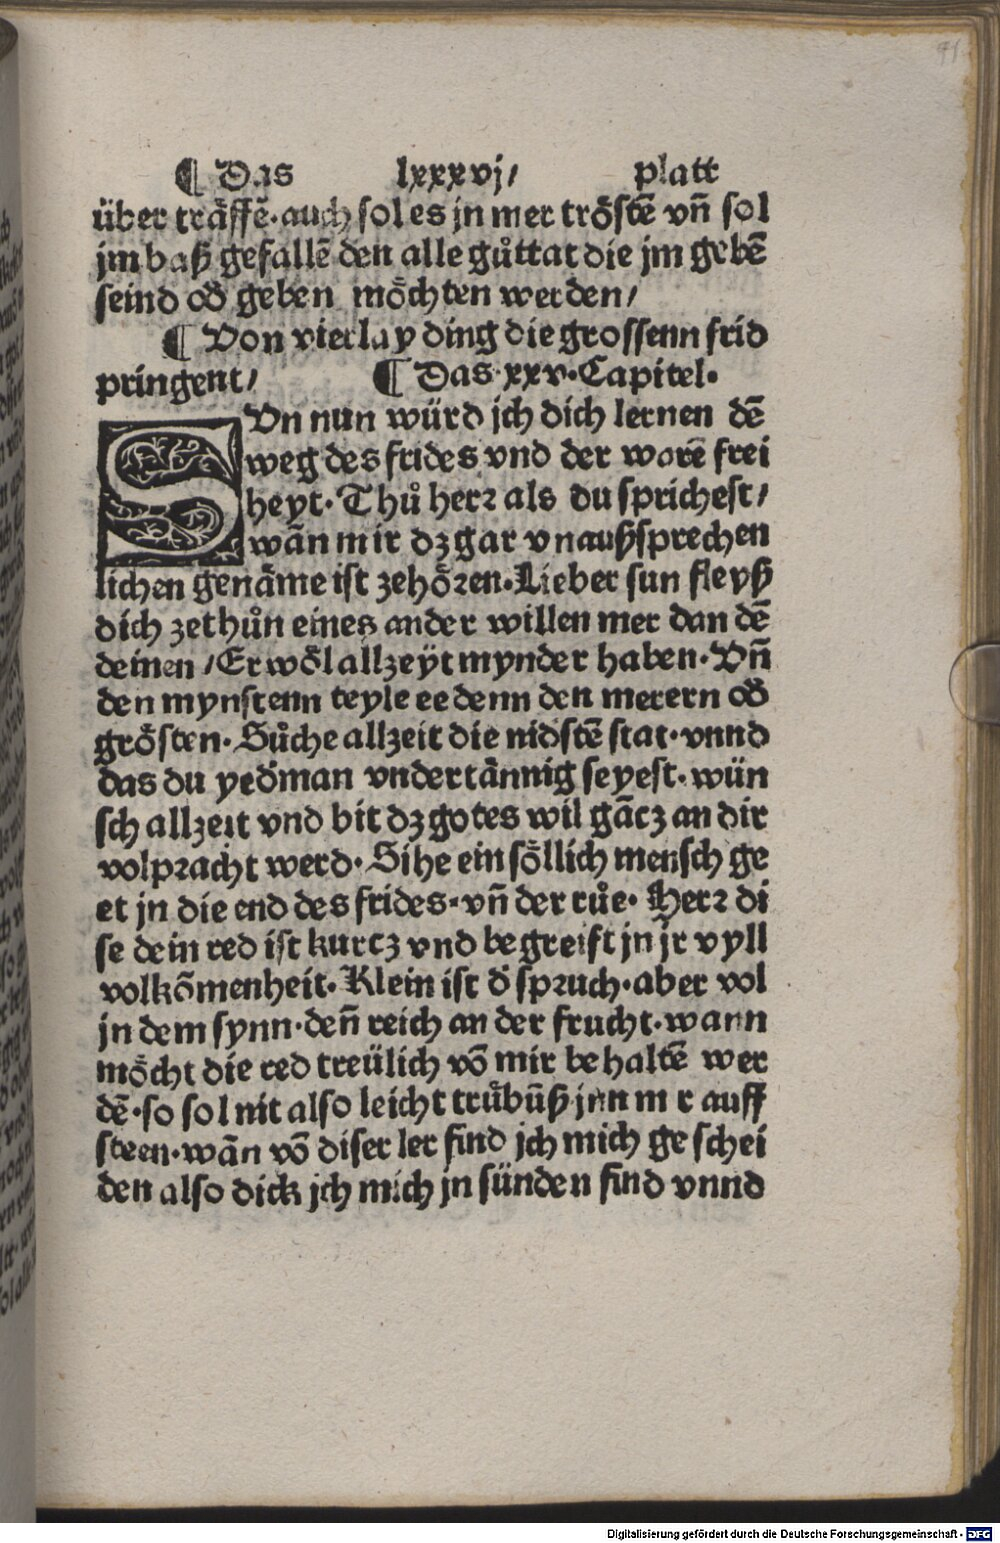 91
¶ Das lxxxvj/ platt
über träffē·auch sol es jn mer trőstē vñ sol
jm baß gefallē den alle gůttat die jm gebē
seind oď geben möchten werden/
¶ Von vierlay ding die grossenn frid
pringent/ ¶ Das·xxv·Capitel·
SVn nun würd jch dich lernen dē
weg des frides vnd der warē frei
heyt·Thů herꝛ als du sprichest/
wān mir dz gar vnaußsprechen
lichen genäme ist zehören·Lieber sun fleyß
dich zethůn eines ander willen mer dan dē
deinen/Er wöl allzeyt mynder haben·Vñ
den mynstenn teyle ee denn den merern oď
grösten·Sůche allzeit die nidstē stat·vnnd
das du yeďman vndertännig seyest·wün
sch allzeit vnd bit dz gotes wil gācz an dir
volpꝛacht werd·Sihe ein söllich mensch ge
et jn die end des frides·vñ der růe·Herꝛ di
se dein red ist kurtz vnd begreift jn jr vyll
volkōmenheit·Klein ist ď spꝛuch·aber vol
jn dem synn·deñ reich an der frucht·wann
möcht die red treülich vō mir behaltē wer
dē·so sol nit also leicht trůbūß jnn m r auff
steen·wān vō diser ler find jch mich geschei
den also dick jch mich jn sünden find vnnd
Digitalisierung gefördert durch die Deutsche Forschungsgemeinschaft - DFG